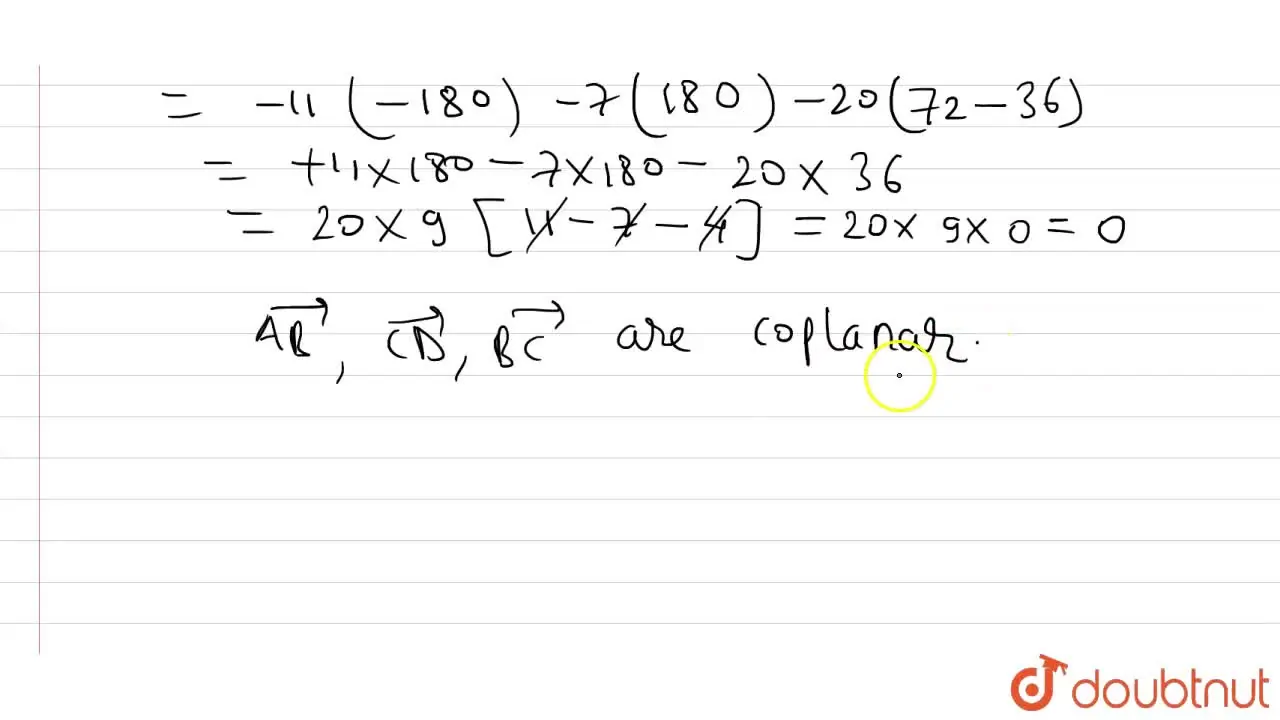 = -11 (-180) -7(180) -20(72-36)
= +11×180 - 7×180 - 20 × 36
= 20 × 9 [11 - 7 - 4] = 20× 9× 0 = 0
AB, CD, BC are coplanar.
doubtnut